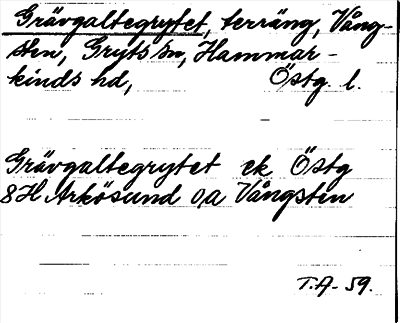 Grävgaltegrytet, terräng, Vång-
sten, Gryts sn, Hammar-
kinds hd, Östg. l.
Grävgaltegrytet ek Östg
8H Arkösund o,a Vångsten
T.A- 59.